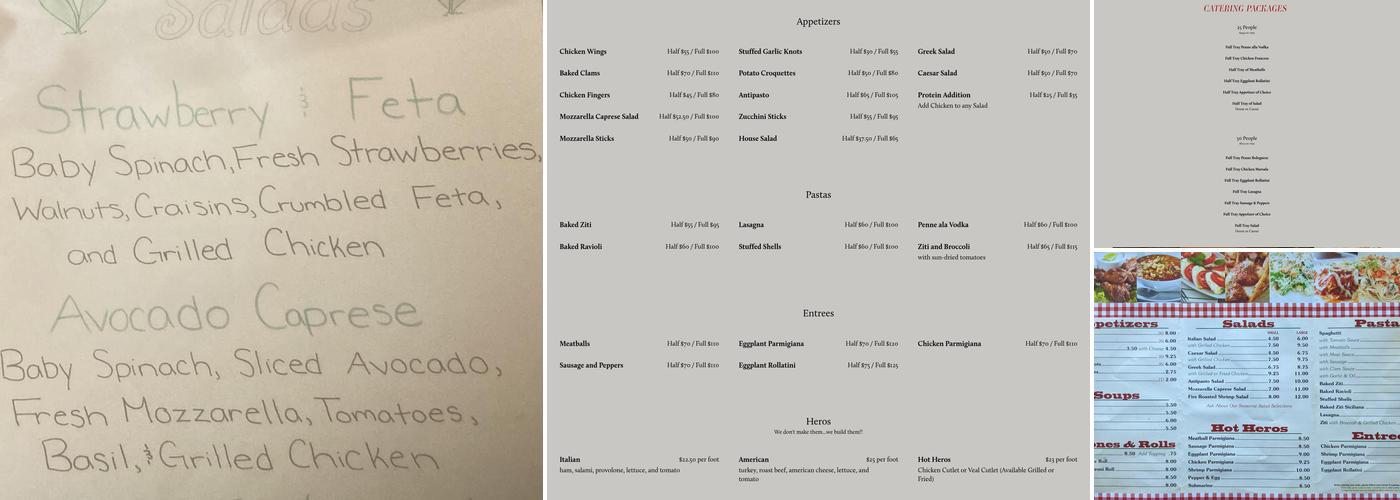 Salads
Strawberry & Feta
Baby Spinach, Fresh Strawberries,
Walnuts, Craisins, Crumbled Feta,
and Grilled Chicken
Avocado Caprese
Baby Spinach, Sliced Avocado,
Fresh Mozzarella, Tomatoes,
Basil, & Grilled Chicken
Appetizers
Chicken Wings Half $55 / Full $100
Baked Clams Half $70 / Full $110
Chicken Fingers Half $45 / Full $80
Mozzarella Caprese Salad Half $52.50 / Full $100
Mozzarella Sticks Half $50 / Full $90
Stuffed Garlic Knots Half $30 / Full $55
Potato Croquettes Half $50 / Full $80
Antipasto Half $65 / Full $105
Zucchini Sticks Half $55 / Full $95
House Salad Half $37.50 / Full $65
Greek Salad Half $50 / Full $70
Caesar Salad Half $50 / Full $70
Protein Addition Half $25 / Full $35
Add Chicken to any Salad
Pastas
Baked Ziti Half $55 / Full $95
Baked Ravioli Half $60 / Full $100
Lasagna Half $60 / Full $100
Stuffed Shells Half $60 / Full $100
Penne ala Vodka Half $60 / Full $100
Ziti and Broccoli Half $65 / Full $115
with sun-dried tomatoes
Entrees
Meatballs Half $70 / Full $110
Sausage and Peppers Half $70 / Full $110
Eggplant Parmigiana Half $70 / Full $120
Eggplant Rollatini Half $75 / Full $125
Chicken Parmigiana Half $70 / Full $110
Heros
We don't make them...we build them!!
Italian $22.50 per foot
ham, salami, provolone, lettuce, and tomato
American $25 per foot
turkey, roast beef, american cheese, lettuce, and
tomato
Hot Heros $23 per foot
Chicken Cutlet or Veal Cutlet (Available Grilled or
Fried)
CATERING PACKAGES
25 People
Full Tray Penne alla Vodka
Full Tray Chicken Francese
Half Tray of Meatballs
Full Tray Eggplant Rollatini
Full Tray Appetizer of Choice
Half Tray of Salad
House or Caesar
50 People
Full Tray Penne Bolognese
Full Tray Chicken Marsala
Full Tray Eggplant Rollatini
Full Tray Lasagna
Full Tray Sausage & Peppers
Full Tray Appetizer of Choice
Full Tray Salad
House or Caesar
petizers
8.00
6.00
3.50 with Cheese 4.50
9.25
6.00
2.75
2.00
Soups
5.50
5.50
6.00
5.50
nes & Rolls
8.50 Add Topping .75
Roll 8.00
Roll 8.00
8.00
Salads
SMALL LARGE
Italian Salad 4.50 6.00
with Grilled Chicken 7.50 9.50
Caesar Salad 4.50 6.75
with Grilled Chicken 7.50 9.75
Greek Salad 6.75 8.75
with Grilled or Fried Chicken 9.25 11.00
Antipasto Salad 7.50 10.00
Mozzarella Caprese Salad 7.00 11.00
Fire Roasted Shrimp Salad 8.00 12.00
Ask About Our Seasonal Salad Selections
Hot Heros
Meatball Parmigiana 8.50
Sausage Parmigiana 8.50
Eggplant Parmigiana 9.00
Chicken Parmigiana 9.25
Shrimp Parmigiana 10.00
Pepper & Egg 8.50
Submarine 8.50
Pasta
Spaghetti
with Tomato Sauce
with Meatballs
with Meat Sauce
with Sausage
with Clam Sauce
with Garlic & Oil
Baked Ziti
Baked Ravioli
Stuffed Shells
Baked Ziti Siciliana
Lasagna
Ziti with Broccoli & Grilled Chicken
Entree
Chicken Parmigiana
Shrimp Parmigiana
Eggplant Parmigiana
Eggplant Rollatini